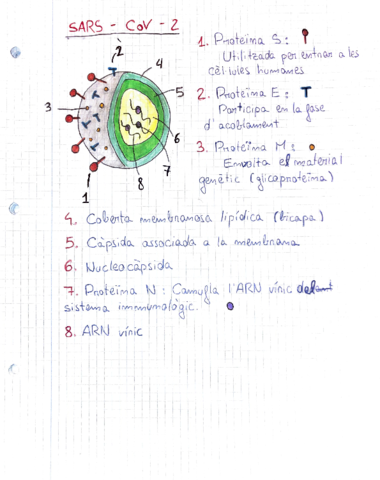 SARS - CoV - 2
2
4
3
5
6
7
1
8
1. Proteïna S:
Utilitzada per entrar a les
cèl·lules humanes
2. Proteïna E:
Participa en la fase
d'acoblament
3. Proteïna M:
Envolta el material
genètic (glicoproteïna)
4. Coberta membranosa lipídica (bicapa)
5. Càpsida associada a la membrana
6. Nucleocàpsida
7. Proteïna N: Camufla l'ARN víric
sistema immunològic.
8. ARN víric